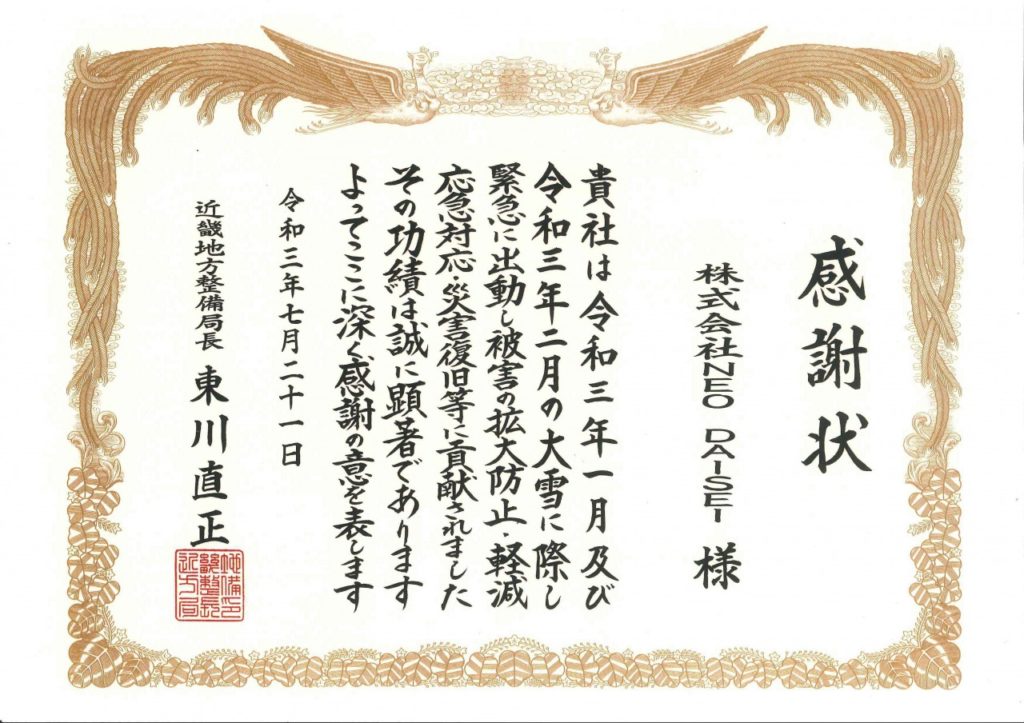 感謝状
株式会社NEO DAISEI 様
貴社は令和三年一月及び
令和三年二月の大雪に際し
緊急に出動し被害の拡大防止・軽減
応急対応・災害復旧等に貢献されました
その功績は誠に顕著であります
よってここに深く感謝の意を表します
令和三年七月二十一日
近畿地方整備局長 東川直正